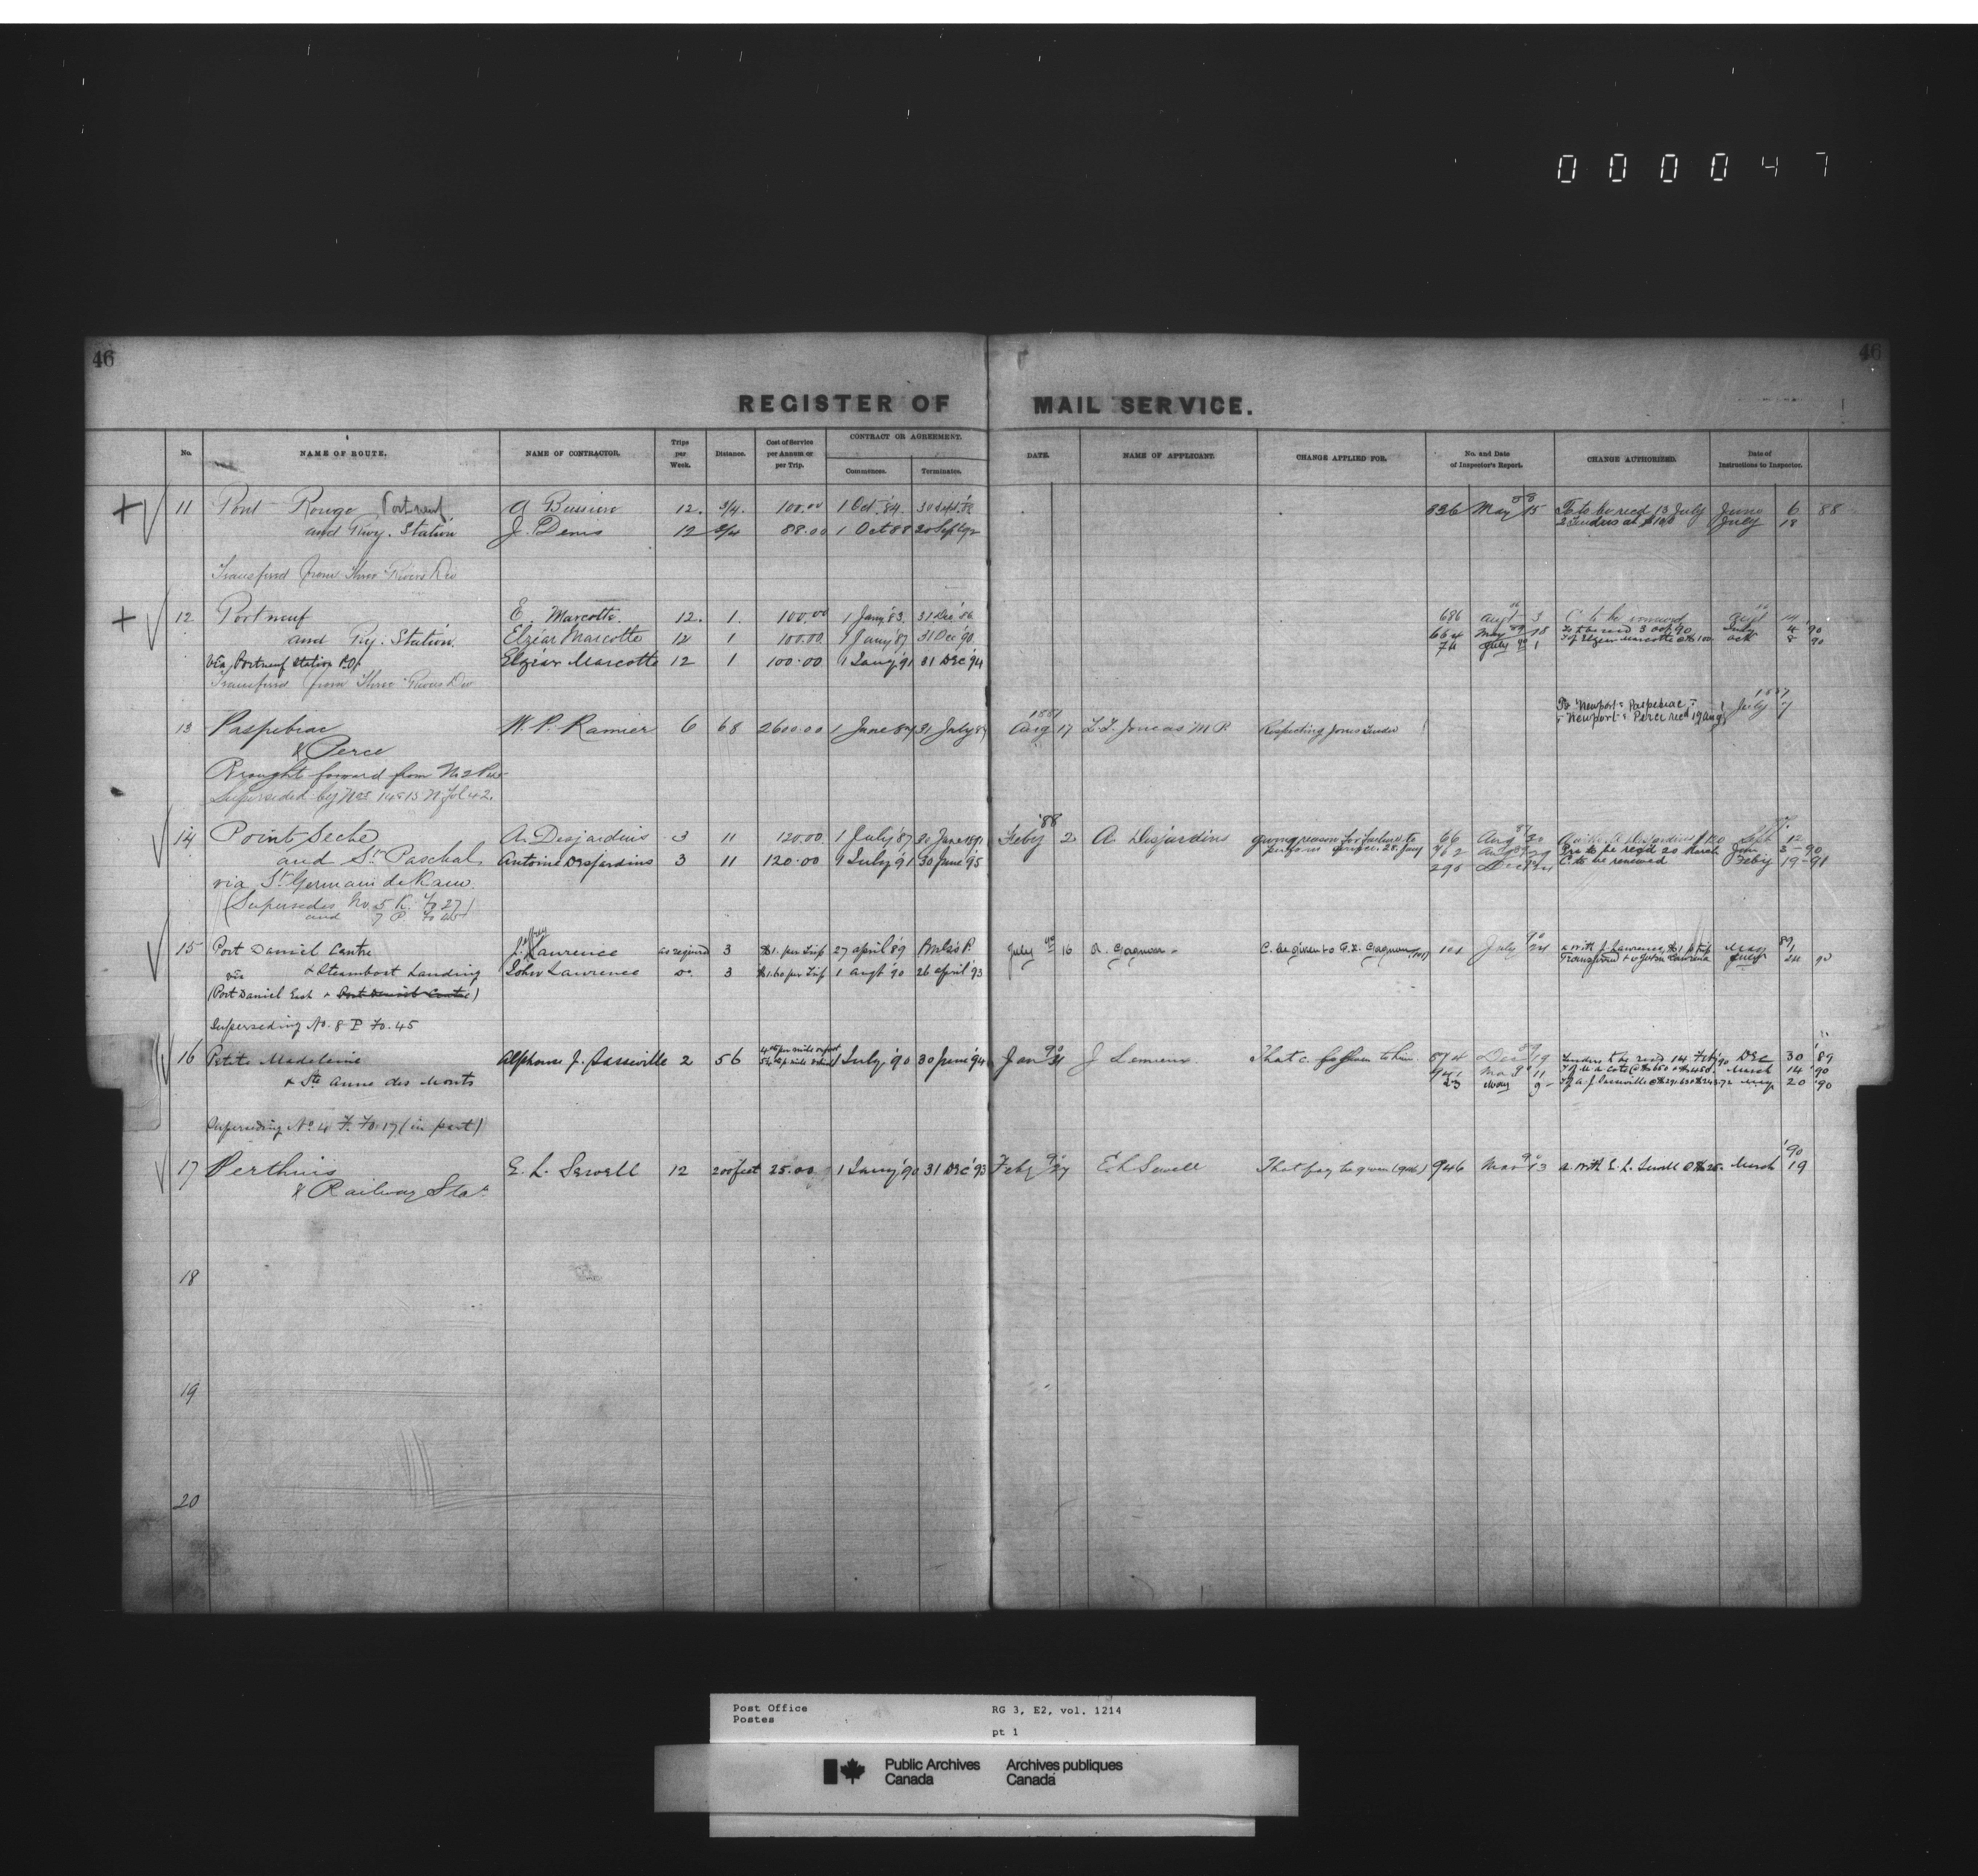 000047
46
46
REGISTER OF MAIL SERVICE.
No.
NAME OF ROUTE.
NAME OF CONTRACTOR.
Trips per Week.
Distance.
Cost of Service per Annum or per Trip.
CONTRACT OR AGREEMENT.
Commences.
Terminates.
DATE.
NAME OF APPLICANT.
CHANGE APPLIED FOR.
No. and Date of Inspector's Report.
CHANGE AUTHORIZED.
Date of Instructions to Inspector.
11 Pont Rouge Portneuf A Bussiere 12. 3/4. 100.00 1 Oct. '84. 30 Sept. 88 May 15 Ts to be recd 13 July June 6 88
and Rwy. Station J. Denis 12 3/4 88.00 1 Oct 88 2 Tenders at $100 July 18
Transferred from Three Rivers Div
12 Portneuf E. Marcotte. 12. 1. 100.00 1 Jany '83. 31 Dec '86 686 Augt 3 C to be renewed Augt 14
and Ry. Station. Elzéar Marcotte 12 1 100.00 1 Jany '87 31 Dec 90. 664 May 89 18 Ts to be recd 3 Oct 90 July 4 '90
via Portneuf Station P.O. Elzéar Marcotte 12 1 100.00 1 Jany '91 31 Dec '94 74 July 90 1 T of Elzear Marcotte @ $100 Oct 8 90
Transferred from Three Rivers Div
1887
Ts Newport & Paspebiac July 7
& Newport & Perce recd 19 Aug
13 Paspebiac W. P. Ramier 6 68 2600.00 1 June 87 31 July 1887 Aug 17 L. Z. Joncas M P. Respecting Jones Tender
& Perce
Brought forward from No 2
Superseded by Nos 14 & 15 N fol 42.
14 Point Seche A. Desjardins 3 11 120.00 1 July '87 30 June 1891 '88 Feby 2 A. Desjardins giving reason for failure to 66 Aug 87 Sept 12
and St Paschal Antoine Desjardins 3 11 120.00 1 July '91 30 June '95 perform service. 28. Jany Ts to be recd 20 March Jan 3-90
via St Germain de Kam. 295 Dec C. to be renewed Feby 19-91
(Supersedes No. 5 K. Fo 27)
and 7 P. Fo 45
15 Port Daniel Centre J. Lawrence as required 3 $1. per Trip 27 April '89 July 90 16 A. Gagnon C. be given to F. X. Gagnon July 90 24 A. with J. Lawrence, $1 p trip May 89 1
via & Steamboat Landing John Lawrence do. 3 $1.60 per Trip 1 Augt '90 26 April '93 Transferred to John Lawrence July 24 90
(Port Daniel East & Port Daniel Centre)
Superseding No. 8 P Fo. 45
16 Petite Madeleine Alphonse J. Sasseville 2 56 1 July '90 30 June '94 Jan 90 J Lemieux That c. be given to him. 574 Dec 89 19 Tenders to be recd 14 Feby 90 Dec 30 '89
& Ste Anne des Monts 941 Mar 90 11 March 14 '90
23 May 9 May 20 '90
Superseding No. 4 F. Fo. 17 (in part)
17 Perthuis E. L. Sewell 12 200 feet 25.00 1 Jany '90 31 Dec '93 Feby 90 27 E L Sewell That pay be given (906) 946 Mar 90 13 A. with E. L. Sewell @ $25. March '90 19
& Railway Stat
18
19
20
Post Office
Postes
RG 3, E2, vol. 1214
pt 1
Public Archives
Canada
Archives publiques
Canada